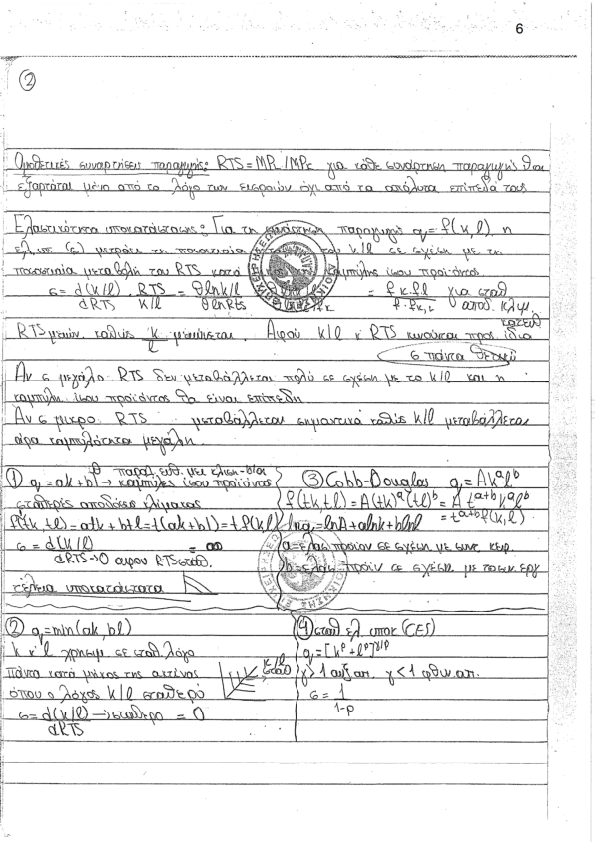 6
2
Ομοθετικές συναρτήσεις παραγωγής: RTS = MPL/MPc για κάθε συνάρτηση παραγωγής θα
εξαρτάται μόνο από το λόγο των εισροών όχι από τα απόλυτα επίπεδα τους
Ελαστικότητα υποκατάστασης: Για τη συνάρτηση παραγωγής q = f(k, l), η
k/l σε σχέση με τη
ποσοστιαία μεταβολή του RTS κατά καμπύλης ίσου προϊόντος
σ = d(k/l) . RTS = θlnk/l = fk.fl για σταθ
dRTS k/l θlnRTS f.fk,L αποδ. κλιμ.
RTS μειών. καθώς k/l μειώνεται. Αφού k/l κ' RTS κινούνται προς ίδια κατευθ
σ πάντα θετικό
Αν σ μεγάλο RTS δεν μεταβάλλεται πολύ σε σχέση με το k/l και η
καμπύλη ίσου προϊόντος θα είναι επίπεδη
Αν σ μικρο RTS μεταβάλλεται σημαντικά καθώς k/l μεταβάλλεται
άρα καμπυλότητα μεγάλη.
1 q = ak + bl → παραλ. ευθ. με κλίση -b/a καμπύλες ίσου προϊόντος
σταθερές αποδόσεις κλίματος
f(tk, tl) = atk + btl = t(ak + bl) = t f(k,l)
σ = d(k/l) = ∞
dRTS→0 αφου RTS σταθ.
τέλεια υποκατάστατα
3 Cobb-Douglas q = Ak^a l^b
f(tk, tl) = A(tk)^a (tl)^b = A t^(a+b) k^a l^b
= t^(a+b) f(k,l)
lnq = lnA + alnk + blnl
a = ελασ προϊον σε σχέση με συντ. κεφ.
b = ελασ προϊν σε σχέση με το συν. εργ
2 q = min(ak, bl)
k κ' l χρησιμ. σε σταθ. λόγο
πάντα κατά μήκος της ακτίνας
όπου ο λόγος k/l σταθερό
k/l σταθ
σ = d(k/l) → σταθερο = 0
dRTS
4 σταθ ελ. υποκ (CES)
q = [k^ρ + l^ρ]^γ/ρ
γ > 1 αυξ απ. γ < 1 φθιν. απ.
σ = 1
1-ρ